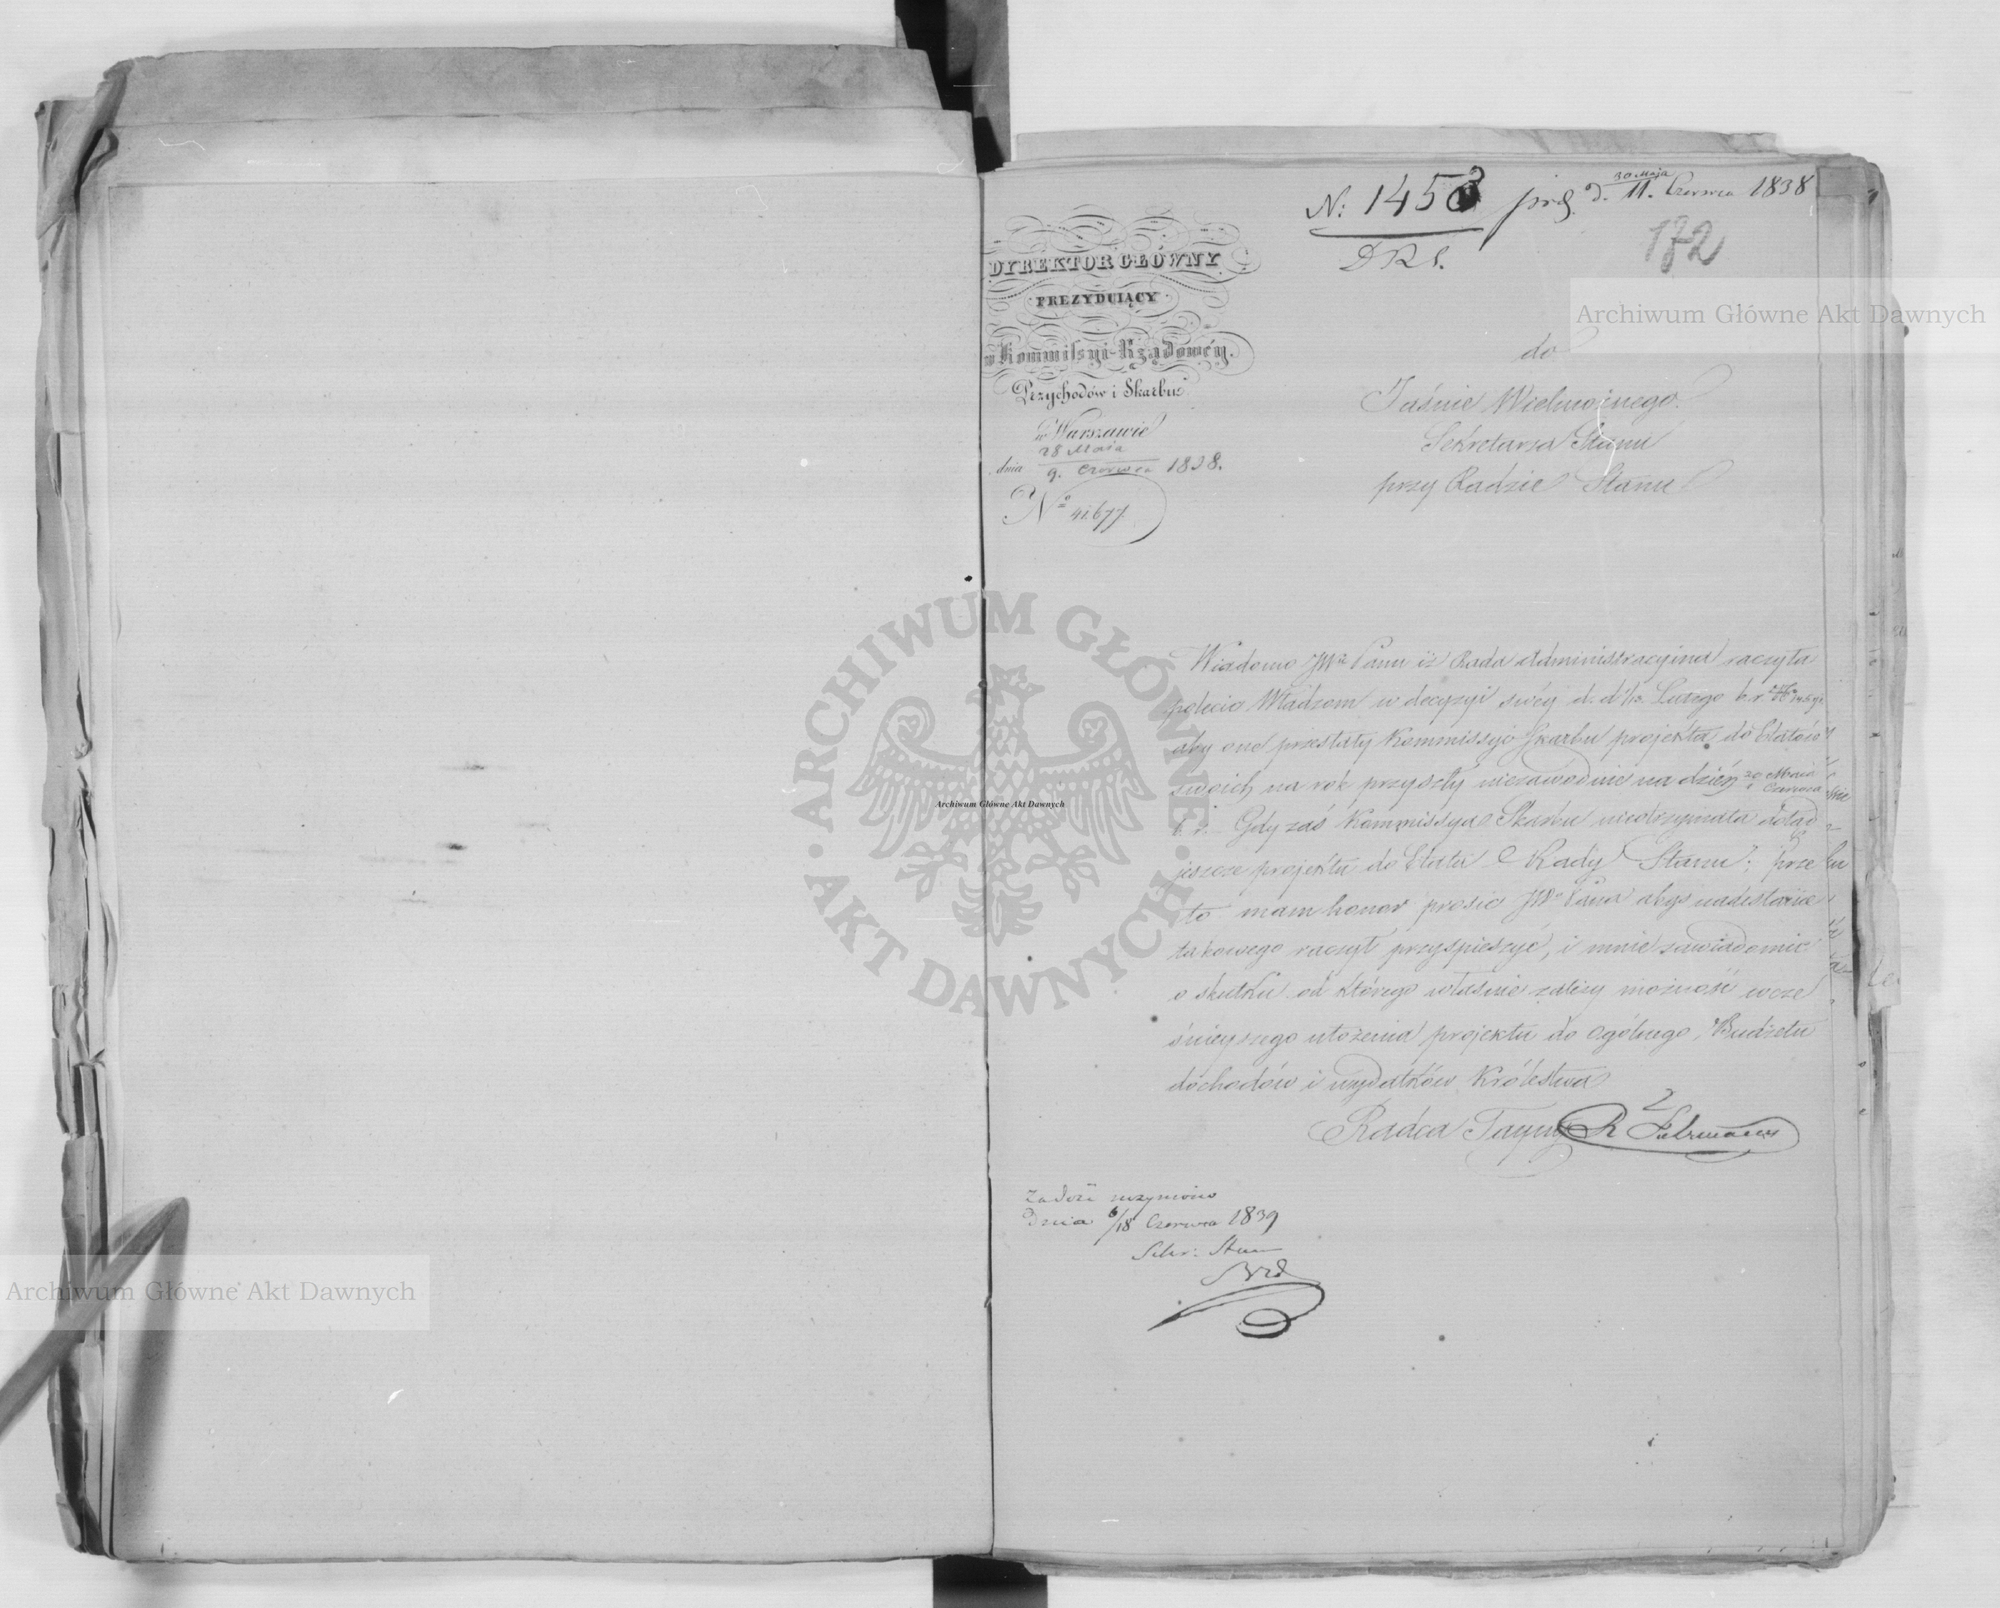 N: 1453 prs. d. 30 Maja / 11. Czerwca 1838
D R S.
172
DYREKTOR GŁÓWNY
PREZYDUIĄCY
w Kommissyi Rządowéy.
Przychodów i Skarbu
w Warszawie
dnia 28 Maia / 9. Czerwca 1838.
No 41677
do
Jaśnie Wielmożnego
Sekretarza Stanu
przy Radzie Stanu
Wiadomo JWu Panu iż Rada Administracyina raczyła
polecić Władzom w decyzyi swéy d. d. 1/13. Lutego b. r.
aby one przesłały Kommissyi Skarbu projekta do Etatów
swoich na rok przyszły niezawodnie na dzień 20 Maia / 1 Czerwca
b. r. Gdy zaś Kommissya Skarbu nieotrzymała dotąd
jeszcze projektu do Etatu Rady Stanu; prze
to mam honor prosić JWo Pana abyś nadesłanie
takowego raczył przyspieszyć, i mnie zawiadomić
o skutku od którego właśnie zależy możność wcze
śnieyszego ułożenia projektu do ogólnego Budżetu
dochodów i wydatków Królestwa
Radca Tayny R Fuhrmann
Zadość uczyniono
Dnia 6/18 Czerwca 1839
Sekr: Stanu
Archiwum Główne Akt Dawnych
ARCHIWUM GŁÓWNE AKT DAWNYCH
Archiwum Główne Akt Dawnych
Archiwum Główne Akt Dawnych